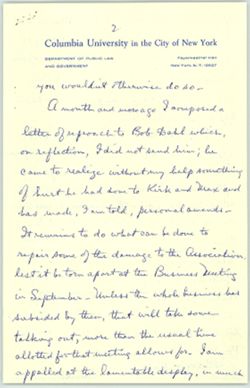 2
Columbia University in the City of New York
DEPARTMENT OF PUBLIC LAW
AND GOVERNMENT
New York, N.Y. 10027
you wouldn't otherwise do so.
A month and more ago I composed a
letter of reproach to Bob Dahl which,
on reflection, I did not send him; he
came to realize without my help something
of hurt he had done to Kirk and Max and
has made, I am told, personal amends.
It remains to do what can be done to
repair some of the damage to the Association,
lest it be torn apart at the Business Meeting
in September. Unless the whole business has
subsided by then, that will take some
talking out; more than the usual time
allotted for that meeting allows for. I am
appalled at the lamentable display, in much